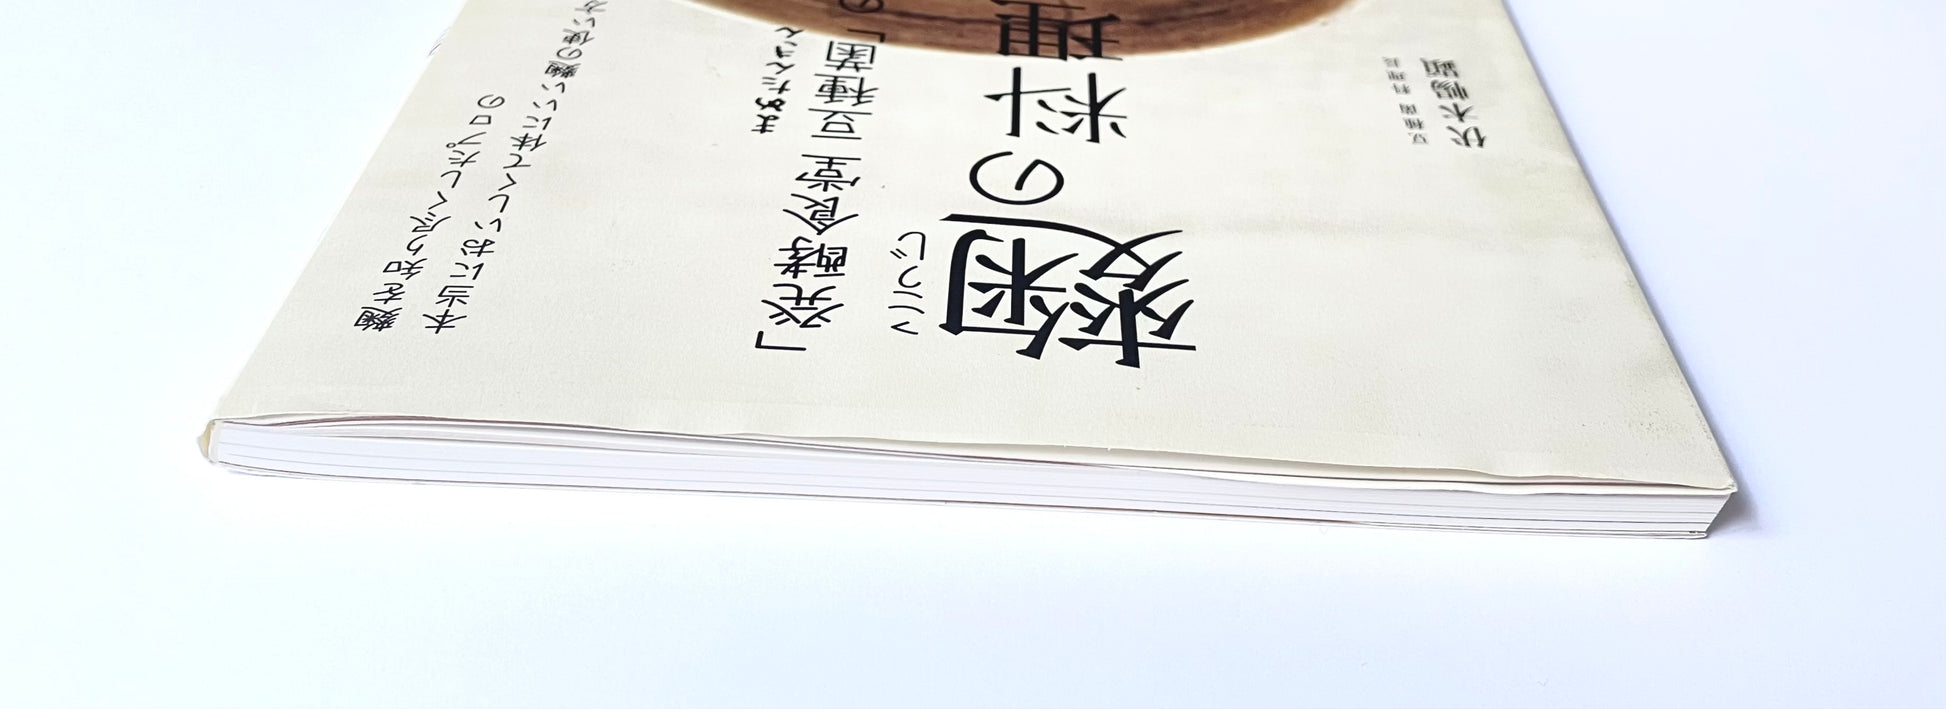 麴を知り尽くしたプロの
本当においしくて体にいい麴の使い方
まめたんきん
「発酵食堂 豆種菌」の
こうじ
麴の料理
豆種菌料理長
伏木暢顕